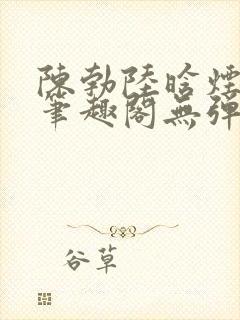 陳勃陸晗煙
筆趣閣無彈
谷草